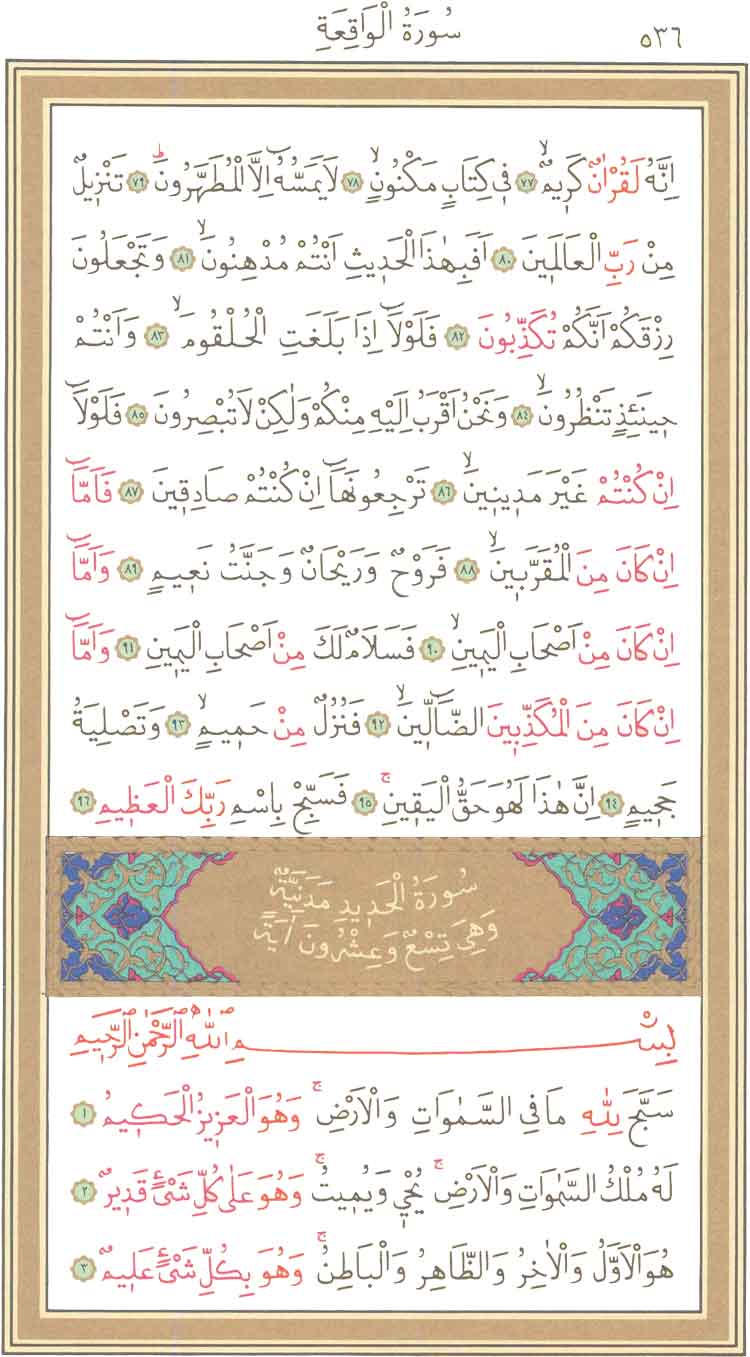 سُورَةُ الْوَاقِعَةِ ٥٣٦
اِنَّهُ لَقُرْاٰنٌ كَرِيمٌۙ ﴿٧٧﴾ فِي كِتَابٍ مَكْنُونٍۙ ﴿٧٨﴾ لَا يَمَسُّهُٓ اِلَّا الْمُطَهَّرُونَۜ ﴿٧٩﴾ تَنْزِيلٌ
مِنْ رَبِّ الْعَالَمِينَ ﴿٨٠﴾ اَفَبِهٰذَا الْحَدِيثِ اَنْتُمْ مُدْهِنُونَۙ ﴿٨١﴾ وَتَجْعَلُونَ
رِزْقَكُمْ اَنَّكُمْ تُكَذِّبُونَ ﴿٨٢﴾ فَلَوْلَٓا اِذَا بَلَغَتِ الْحُلْقُومَۙ ﴿٨٣﴾ وَاَنْتُمْ
حِينَئِذٍ تَنْظُرُونَۙ ﴿٨٤﴾ وَنَحْنُ اَقْرَبُ اِلَيْهِ مِنْكُمْ وَلٰكِنْ لَا تُبْصِرُونَ ﴿٨٥﴾ فَلَوْلَٓا
اِنْ كُنْتُمْ غَيْرَ مَدِينِينَۙ ﴿٨٦﴾ تَرْجِعُونَهَٓا اِنْ كُنْتُمْ صَادِقِينَ ﴿٨٧﴾ فَاَمَّٓا
اِنْ كَانَ مِنَ الْمُقَرَّبِينَۙ ﴿٨٨﴾ فَرَوْحٌ وَرَيْحَانٌ وَجَنَّتُ نَعِيمٍ ﴿٨٩﴾ وَاَمَّٓا
اِنْ كَانَ مِنْ اَصْحَابِ الْيَمِينِۙ ﴿٩٠﴾ فَسَلَامٌ لَكَ مِنْ اَصْحَابِ الْيَمِينِ ﴿٩١﴾ وَاَمَّٓا
اِنْ كَانَ مِنَ الْمُكَذِّبِينَ الضَّٓالِّينَۙ ﴿٩٢﴾ فَنُزُلٌ مِنْ حَمِيمٍۙ ﴿٩٣﴾ وَتَصْلِيَةُ
جَحِيمٍ ﴿٩٤﴾ اِنَّ هٰذَا لَهُوَ حَقُّ الْيَقِينِۚ ﴿٩٥﴾ فَسَبِّحْ بِاسْمِ رَبِّكَ الْعَظِيمِ ﴿٩٦﴾
سُورَةُ الْحَدِيدِ مَدَنِيَّةٌ
وَهِيَ تِسْعٌ وَعِشْرُونَ اٰيَةً
بِسْمِ اللّٰهِ الرَّحْمٰنِ الرَّحِيمِ
سَبَّحَ لِلّٰهِ مَا فِي السَّمٰوَاتِ وَالْاَرْضِۚ وَهُوَ الْعَزِيزُ الْحَكِيمُ ﴿١﴾
لَهُ مُلْكُ السَّمٰوَاتِ وَالْاَرْضِۚ يُحْيِ وَيُمِيتُۚ وَهُوَ عَلٰى كُلِّ شَيْءٍ قَدِيرٌ ﴿٢﴾
هُوَ الْاَوَّلُ وَالْاٰخِرُ وَالظَّاهِرُ وَالْبَاطِنُۚ وَهُوَ بِكُلِّ شَيْءٍ عَلِيمٌ ﴿٣﴾